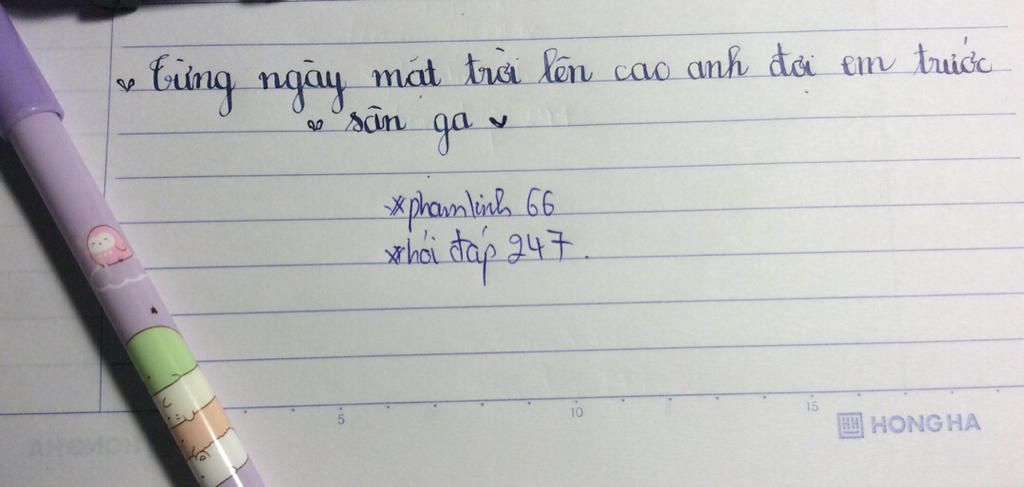 Từng ngày mặt trời lên cao anh đợi em trước
sân ga
*phamlinh 66
*hỏi đáp 247.
5 10 15
HONG HA